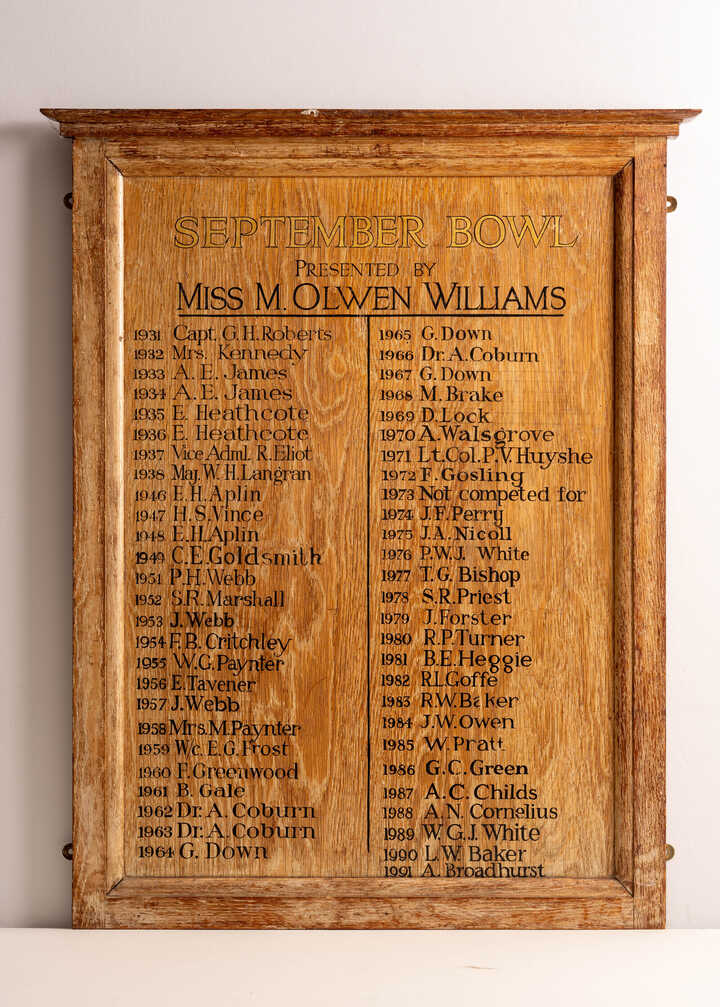 SEPTEMBER BOWL
PRESENTED BY
MISS M. OLWEN WILLIAMS
1931 Capt. G.H. Roberts
1932 Mrs. Kennedy
1933 A. E. James
1934 A. E. James
1935 E. Heathcote
1936 E. Heathcote
1937 Vice Adml. R. Eliot
1938 Maj. W. H. Langran
1946 E.H. Aplin
1947 H.S. Vince
1948 E.H. Aplin
1949 C.E. Goldsmith
1951 P.H. Webb
1952 S.R. Marshall
1953 J. Webb
1954 F.B. Critchley
1955 W.G. Paynter
1956 E. Tavener
1957 J. Webb
1958 Mrs. M. Paynter
1959 Wc. E.G. Frost
1960 F. Greenwood
1961 B. Gale
1962 Dr. A. Coburn
1963 Dr. A. Coburn
1964 G. Down
1965 G. Down
1966 Dr. A. Coburn
1967 G. Down
1968 M. Brake
1969 D. Lock
1970 A. Walsgrove
1971 Lt. Col. P.V. Huyshe
1972 F. Gosling
1973 Not competed for
1974 J.F. Perry
1975 J.A. Nicoll
1976 P.W.J. White
1977 T.G. Bishop
1978 S.R. Priest
1979 J. Forster
1980 R.P. Turner
1981 B.E. Heggie
1982 R.L. Goffe
1983 R.W. Baker
1984 J.W. Owen
1985 W. Pratt
1986 G.C. Green
1987 A.C. Childs
1988 A.N. Cornelius
1989 W.G.J. White
1990 L.W. Baker
1991 A. Broadhurst